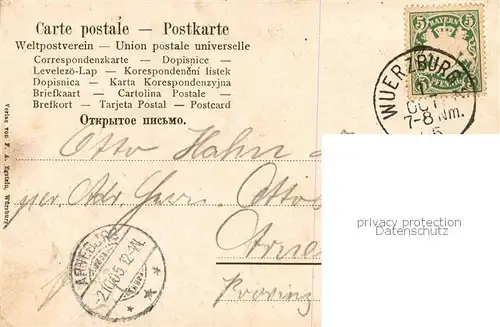 Carte postale — Postkarte
Weltpostverein — Union postale universelle
Correspondenzkarte — Dopisnice —
Levelező-Lap — Korespondenční lístek
Dopisnica — Karta Korespondenzyjna
Briefkaart — Cartolina Postale —
Brefkort — Tarjeta Postal — Postcard
Открытое письмо.
Verlag von F. A.
BAYERN
5 5
PFENNIG
WUERZBURG
OCT
7-8 Nm.
Otto Hahn
per Adr Herrn Otto
Arns
Provinz
ARNSBERG
2.10.05.12-1N.
personally protected
against abusement